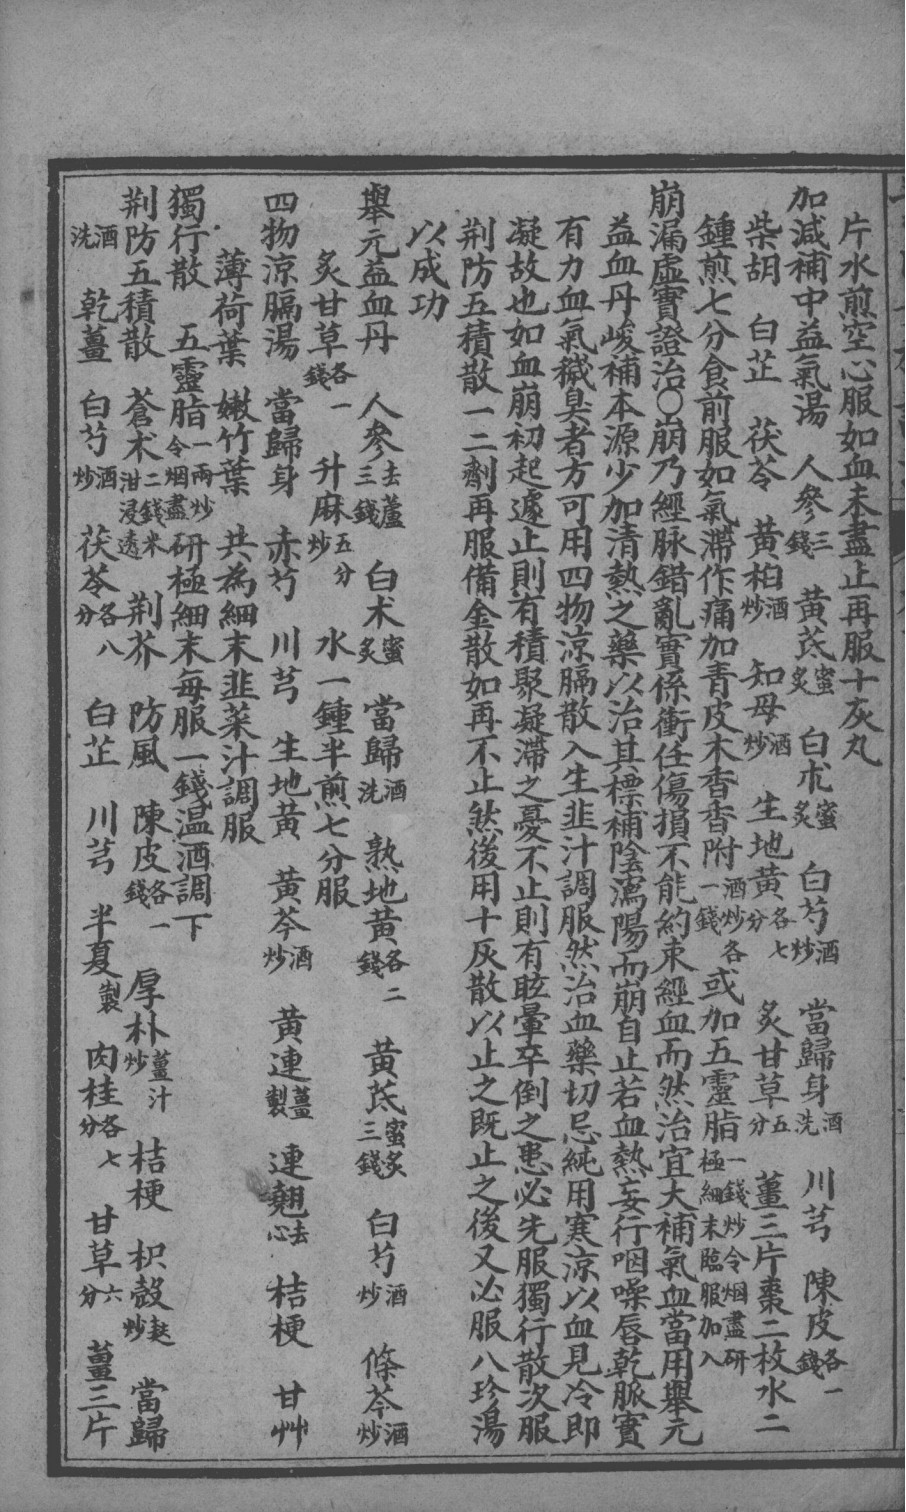 片水煎空心服如血未盡止再服十灰丸
加減補中益氣湯　人參三錢　黃芪蜜炙　白朮蜜炙　白芍酒炒　當歸身酒洗　川芎　陳皮各一錢
柴胡　白芷　茯苓　黃柏酒炒　知母酒炒　生地黃各七分　炙甘草五分　薑三片棗二枚水二
鍾煎七分食前服如氣滯作痛加青皮木香香附酒炒各一錢或加五靈脂一錢炒令烟盡研極細末臨服加入
崩漏虛實證治〇崩乃經脉錯亂實係衝任傷損不能約束經血而然治宜大補氣血當用舉元
益血丹峻補本源少加清熱之藥以治其標補陰瀉陽而崩自止若血熱妄行咽噪唇乾脈實
有力血氣穢臭者方可用四物涼膈散入生韭汁調服然治血藥切忌純用寒涼以血見冷即
凝故也如血崩初起遽止則有積聚凝滯之憂不止則有眩暈卒倒之患必先服獨行散次服
荆防五積散一二劑再服備金散如再不止然後用十灰散以止之既止之後又必服八珍湯
以成功
舉元益血丹　人參去蘆三錢　白术蜜炙　當歸酒洗　熟地黃各二錢　黃芪蜜炙三錢　白芍酒炒　條芩酒炒
炙甘草各一錢　升麻五分炒　水一鍾半煎七分服
四物涼膈湯　當歸身　赤芍　川芎　生地黃　黃芩酒炒　黃連薑製　連翹去心　桔梗　甘艸
薄荷葉　嫩竹葉　共為細末韭菜汁調服
獨行散　五靈脂一兩炒令烟盡研極細末每服一錢温酒調下
荆防五積散　蒼术二錢米泔浸透　荆芥　防風　陳皮各一錢　厚朴薑汁炒　桔梗　枳殼麩炒　當歸
酒洗　乾薑　白芍酒炒　茯苓各八分　白芷　川芎　半夏製　肉桂各七分　甘草六分　薑三片